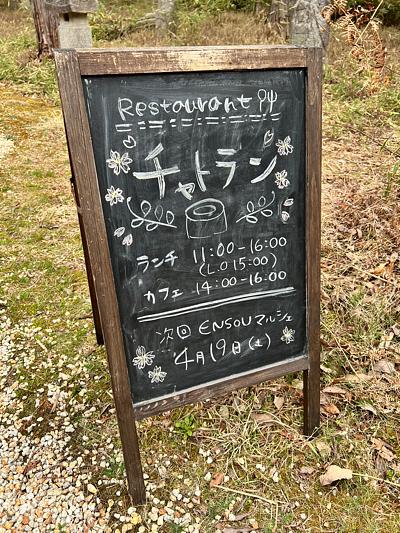 Restaurant
チャトラン
ランチ 11:00-16:00
(L.O 15:00)
カフェ 14:00-16:00
次回 ENSOUマルシェ
4月19日(土)